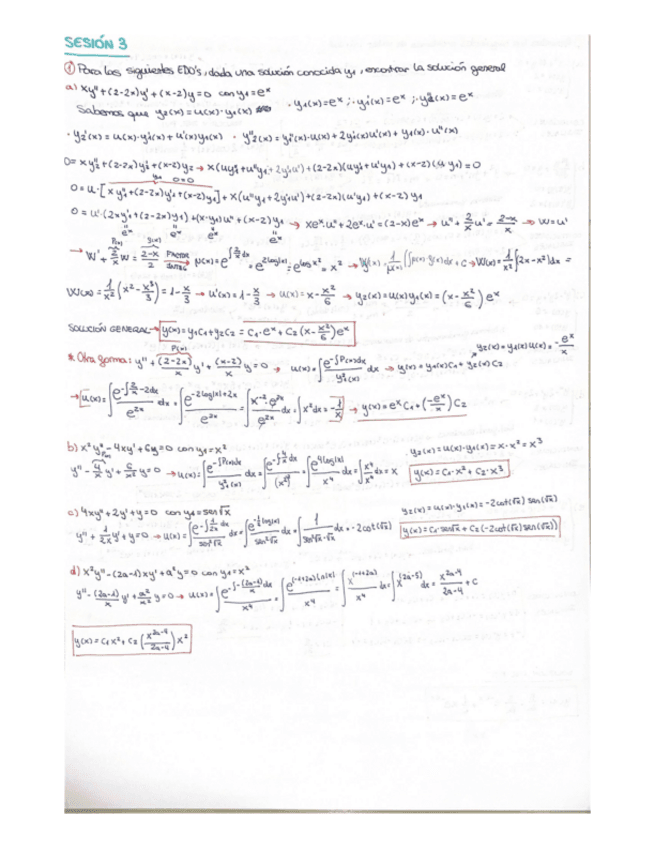 SESIÓN 3
① Para las siguientes EDO's, dada una solución conocida y₁, encontrar la solución general
a) xy''+(2-2x)y'+(x-2)y=0 con y₁=eˣ
Sabemos que y₂(x)=u(x)·y₁(x) · y₁(x)=eˣ; · y₁'(x)=eˣ; · y₁''(x)=eˣ
· y₂'(x)=u(x)·y₁'(x)+u'(x)y₁(x) · y₂''(x)=y₁''(x)·u(x)+2y₁'(x)u'(x)+y₁(x)·u''(x)
0=xy₂''+(2-2x)y₂'+(x-2)y₂ → x(uy₁''+u''y₁+2y₁'u')+(2-2x)(uy₁'+u'y₁)+(x-2)(u y₁)=0
0=u·[xy₁''+(2-2x)y₁'+(x-2)y₁]+x(u''y₁+2y₁'u')+(2-2x)(u'y₁)+(x-2)y₁
→ xeˣ·u''+2eˣ·u'=(2-x)eˣ → u''+2/x u'=(2-x)/x → w=u'
w(x)=1/x²(x²-x³/3)=1-x/3 → u'(x)=1-x/3 → u(x)=x-x²/6 → y₂(x)=u(x)y₁(x)=(x-x²/6)eˣ
SOLUCIÓN GENERAL → y(x)=y₁C₁+y₂C₂=C₁·eˣ+C₂(x-x²/6)eˣ
y₂(x)=y₁(x)u(x)=-eˣ/x
* Otra forma: y''+(2-2x)/x y'+(x-2)/x y=0 → u(x)=∫e^(-∫P(x)dx)/y₁²(x) dx → y(x)=y₁(x)C₁+y₂(x)C₂
→ y(x)=eˣC₁+(-eˣ/x)C₂
b) x²y''-4xy'+6y=0 con y₁=x² · y₂(x)=u(x)·y₁(x)=x·x²=x³
y''-4/x y'+6/x² y=0 → u(x)=∫e^(-∫P(x)dx)/y₁²(x) dx=∫e^(-∫-4/x dx)/(x²)² dx=∫e^(4log|x|)/x⁴ dx=∫x⁴/x⁴ dx=x y(x)=C₁·x²+C₂·x³
c) 4xy''+2y'+y=0 con y₁=sen√x y₂(x)=u(x)·y₁(x)=-2cot(√x)sen(√x)
y''+1/2x y'+y=0 → u(x)=∫e^(-∫1/2x dx)/sen²√x dx=∫e^(-½log|x|)/sen²√x dx=∫1/sen²√x·√x dx=-2cot(√x) y(x)=C₁·sen√x+C₂(-2cot(√x)sen(√x))
d) x²y''-(2a-1)xy'+a²y=0 con y₁=x²
y''-(2a-1)/x y'+a²/x² y=0 → u(x)=∫e^(-∫-(2a-1)/x dx)/x⁴=∫e^((-1+2a)ln|x|)/x⁴=∫x^(-1+2a)/x⁴ dx=∫x^(2a-5) dx=x^(2a-4)/(2a-4)+C
y(x)=C₁x²+C₂(x^(2a-4)/(2a-4))x²